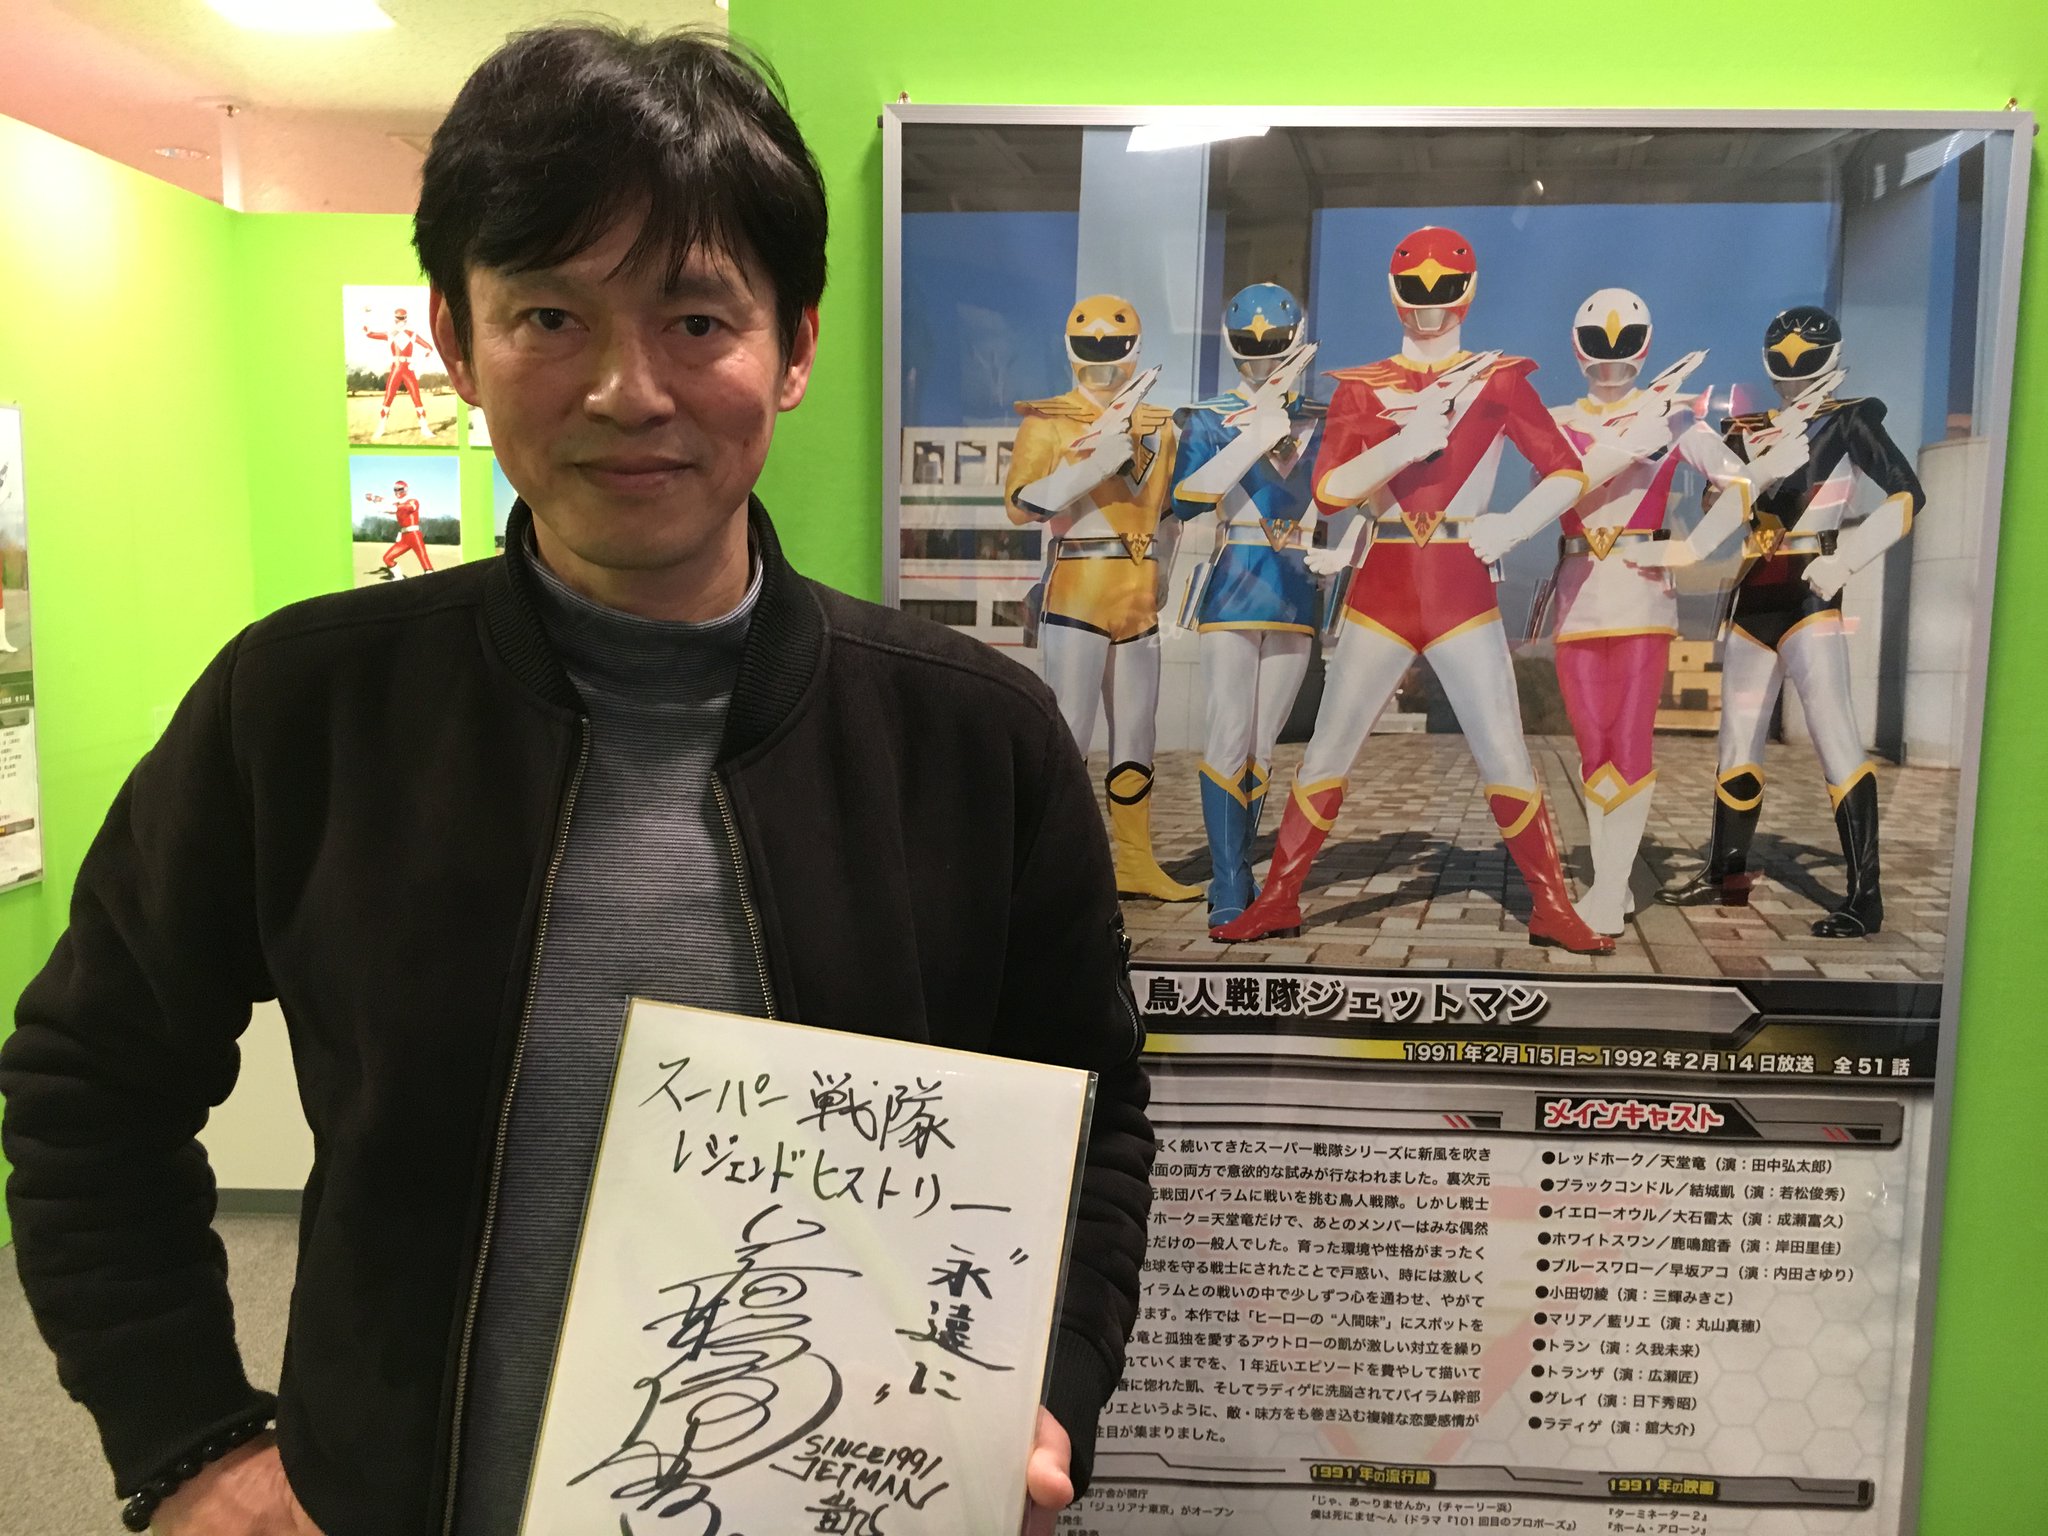 鳥人戦隊ジェットマン
1991年2月15日〜1992年2月14日放送 全51話
長く続いてきたスーパー戦隊シリーズに新風を吹き
面の両方で意欲的な試みが行なわれました。裏次元
元戦団バイラムに戦いを挑む鳥人戦隊。しかし戦士
ホーク＝天堂竜だけで、あとのメンバーはみな偶然
ただけの一般人でした。育った環境や性格がまったく
地球を守る戦士にされたことで戸惑い、時には激しく
イラムとの戦いの中で少しずつ心を通わせ、やがて
きます。本作では「ヒーローの“人間味”」にスポットを
る竜と孤独を愛するアウトローの凱が激しい対立を繰り
れていくまでを、1年近いエピソードを費やして描いて
香に惚れた凱、そしてラディゲに洗脳されてバイラム幹部
リエというように、敵・味方をも巻き込む複雑な恋愛感情が
注目が集まりました。
メインキャスト
●レッドホーク／天堂竜（演：田中弘太郎）
●ブラックコンドル／結城凱（演：若松俊秀）
●イエローオウル／大石雷太（演：成瀬富久）
●ホワイトスワン／鹿鳴館香（演：岸田里佳）
●ブルースワロー／早坂アコ（演：内田さゆり）
●小田切綾（演：三輝みきこ）
●マリア／藍リエ（演：丸山真穂）
●トラン（演：久我未来）
●トランザ（演：広瀬匠）
●グレイ（演：日下秀昭）
●ラディゲ（演：舘大介）
都庁舎が開庁
「ジュリアナ東京」がオープン
発生
1991年の流行語
「じゃ、あ〜りませんか」（チャーリー浜）
僕は死にませ〜ん（ドラマ『101回目のプロポーズ』）
1991年の映画
『ターミネーター2』
『ホーム・アローン』
スーパー戦隊
レジェンドヒストリー
“永遠に”
SINCE1991
JETMAN